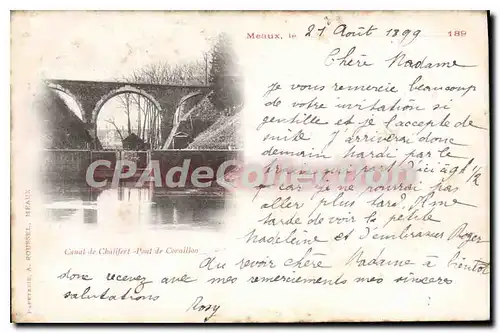 Meaux, le 21 Août 1899 189
Chère Madame
Je vous remercie beaucoup
de votre invitation si
gentille et je l'accepte de
suite J'arriverai donc
demain mardi par le
premier train d'ici à 9h 1/2
car je ne pourrai pas
aller plus tard. Il me
tarde de voir la petite
Madeleine et d'embrasser Roger
Au revoir chère Madame à bientôt
donc recevez avec mes remerciements mes sincères
salutations Rosy
Canal de Chalifert - Pont de Cornillon
PAPETERIE, A. ROUSSEL, MEAUX
CPArama.com